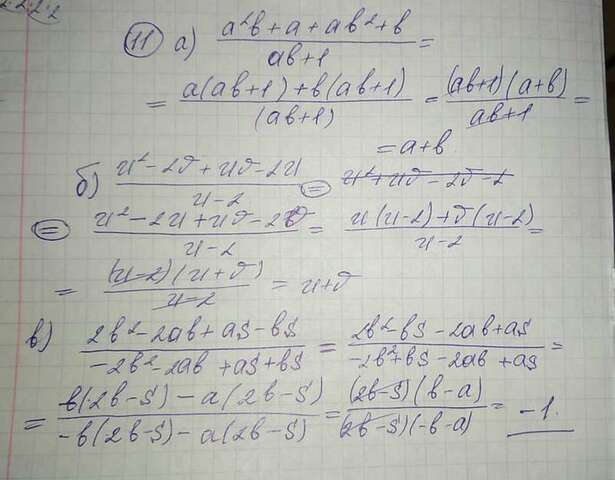 11 а) (a²b + a + ab² + b)/(ab+1) =
= (a(ab+1) + b(ab+1))/((ab+1)) = ((ab+1)(a+b))/(ab+1) =
= a+b
б) (u² - 2v + uv - 2u)/(u-2) = u² + uv - 2v - 2
= (u² - 2u + uv - 2v)/(u-2) = (u(u-2) + v(u-2))/(u-2) =
= ((u-2)(u+v))/(u-2) = u+v
в) (2b² - 2ab + as - bs)/(-2b² - 2ab + as + bs) = (2b² - bs - 2ab + as)/(-2b² + bs - 2ab + as) =
= (b(2b-s) - a(2b-s))/(-b(2b-s) - a(2b-s)) = ((2b-s)(b-a))/((2b-s)(-b-a)) = -1.